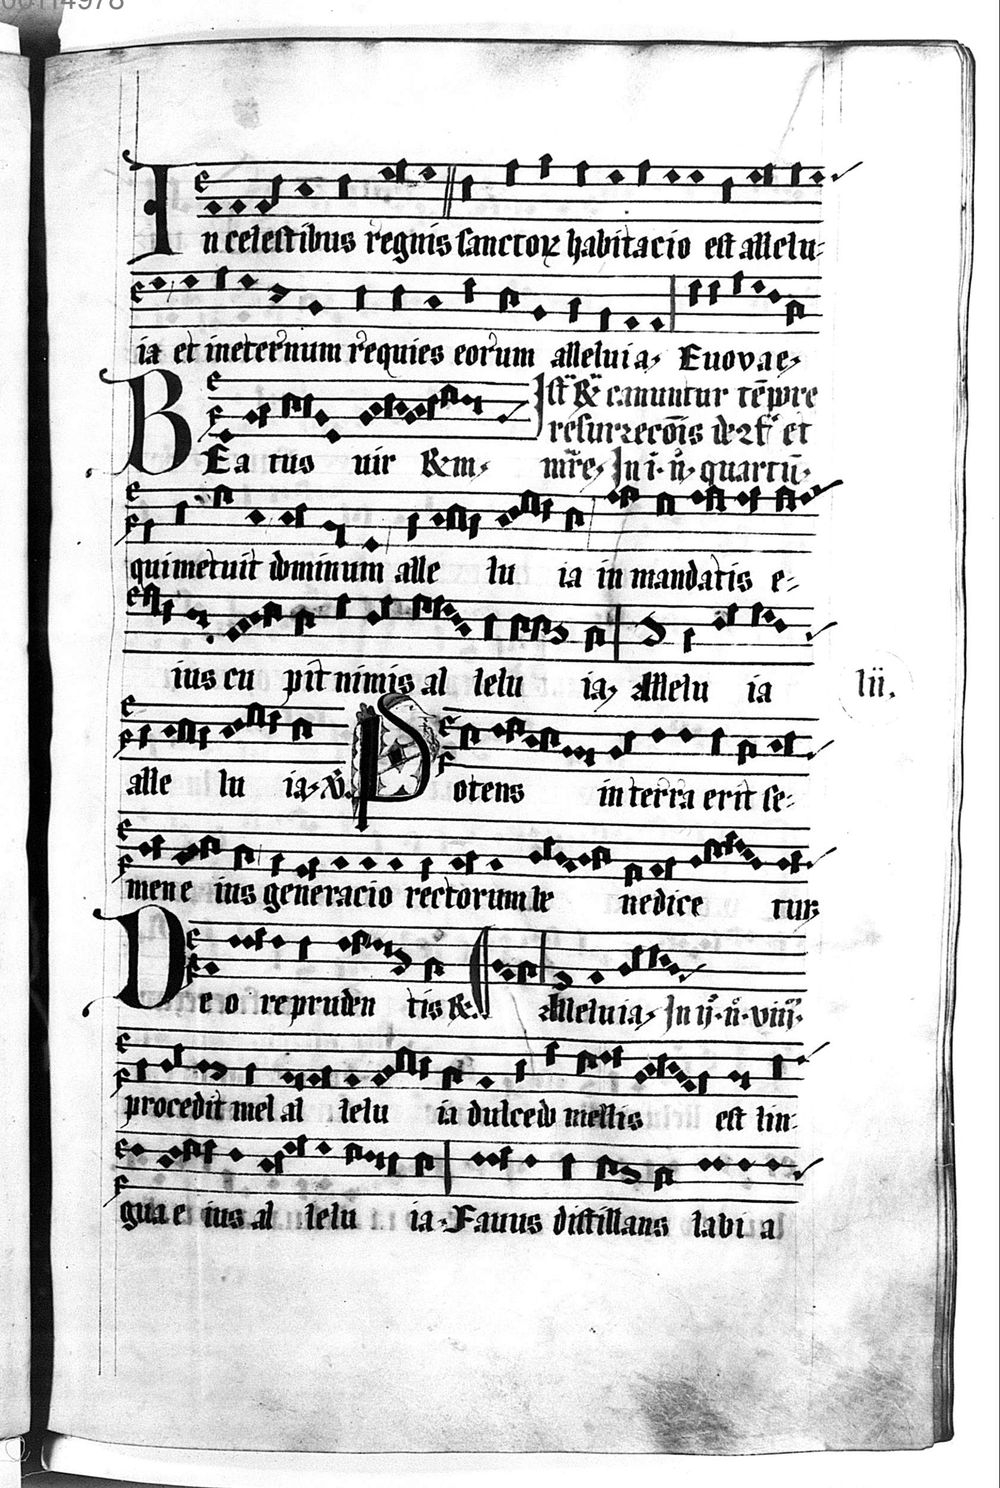 00114978
In celestibus regnis sanctorꝝ habitacio est allelu-
ia et in eternum requies eorum alleluia, Euovae,
canuntur
et
BEatus uir Rm, In i. n. quartū.
qui metuit dominum alle lu ia in mandatis e-
ius cu pit nimis al lelu ia, Allelu ia
lii.
alle lu ia, Potens in terra erit se-
men e ius generacio rectorum be nedice tur
De o re pruden tis Alleluia, In ij. n. viii.
procedit mel al lelu ia dulcedo mellis est lin-
gua e ius al lelu ia. Fauus distillans labi a